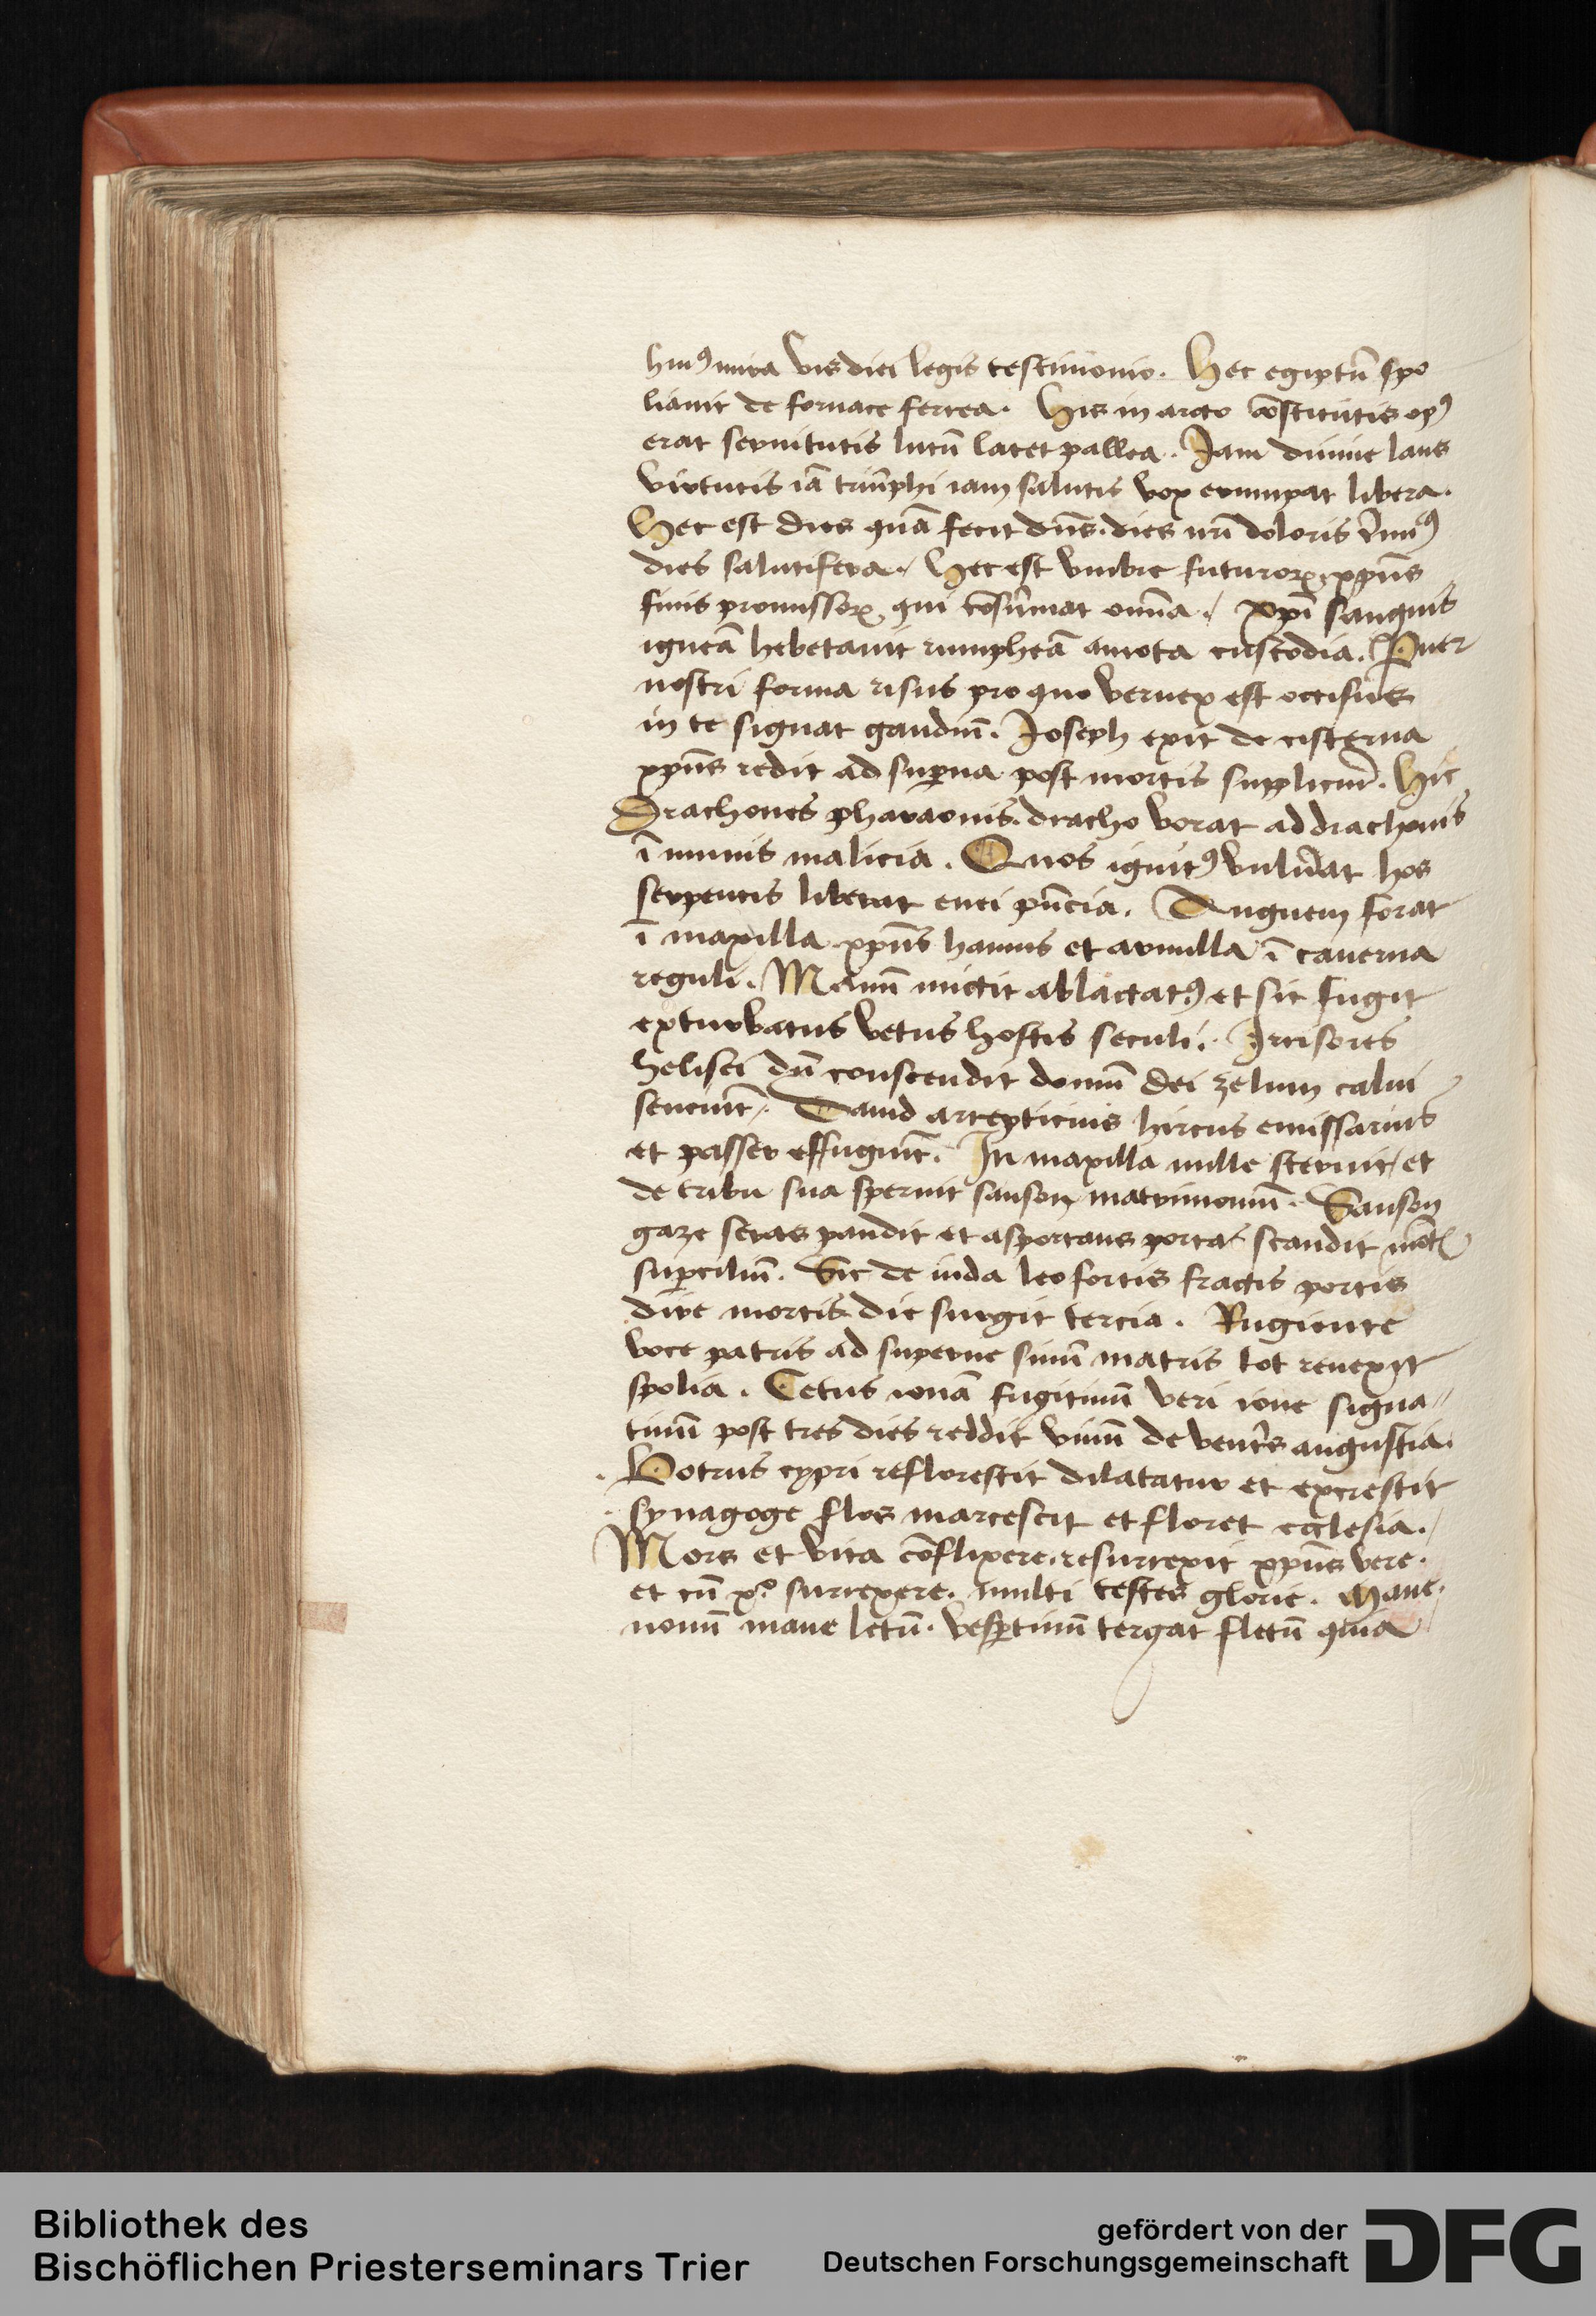 huiꝰ mira vis diei legis testimonio. Hec egiptū spo
liauit de fornace ferrea. His in arcto ↄstitutis opꝰ
erat seruitutis lutū later pallea. Jam diuine laus
virtutis iā triūphi iam salutis vox erumpat libera.
Hec est dies quā fecit dn̄s. dies nr̄i doloris t̄minꝰ
dies salutifera. Hec est vmbre futuroꝝ xpūs
finis promissoꝝ qui cōsūmat omīa. Xpī sanguis
igneā hebetauit rumpheā amota custodia. Puer
nostri forma risus pro quo veruex est occisus
in te signat gaudiū. Joseph exit de cisterna
xpūs redit ad sup̄na post mortis suppliciū. Hic
Drachones pharaonis. dracho vorat a drachonis
ī munis malicia. Quos ignitꝰ vuln̄at hos
serpentis liberat enei pn̄cia. Anguem forat
ī maxilla xpūs hamus et armilla ī cauerna
reguli. Manū mictit ablactatꝰ et sic fugit
exturbatus vetus hostis seculi. Irrisores
helisei dū conscendit domū dei zelum calui
senciūt. Dauid arrepticius hircus emissarius
et passer effugiūt. In maxilla mille sternit et
de tribu sua spernit sanson matrimoniū. Sanson
gaze seras pandit et asportans portas scandit mōtꝭ
sup̄ciliū. Sic de iuda leo fortis fractis portis
dire mortis die surgit tercia. Rugiente
voce patris ad superne sinū matris tot reuexit
spolia. Cetus ionā fugitiuū veri ione signa
tiuū post tres dies reddit viuū de vent̄s angustia.
Botrus cypri reflorescit dilatatur et excrescit
synagoge flos marcescit et floret ecclesia.
Mors et vita cōflixere. resurrexit xpūs vere.
et cū xo surrexere. multi testes glorie. Mane
nouū mane letū. vesp̄tinū tergat fletū quia
Bibliothek des
Bischöflichen Priesterseminars Trier
gefördert von der
Deutschen Forschungsgemeinschaft
DFG